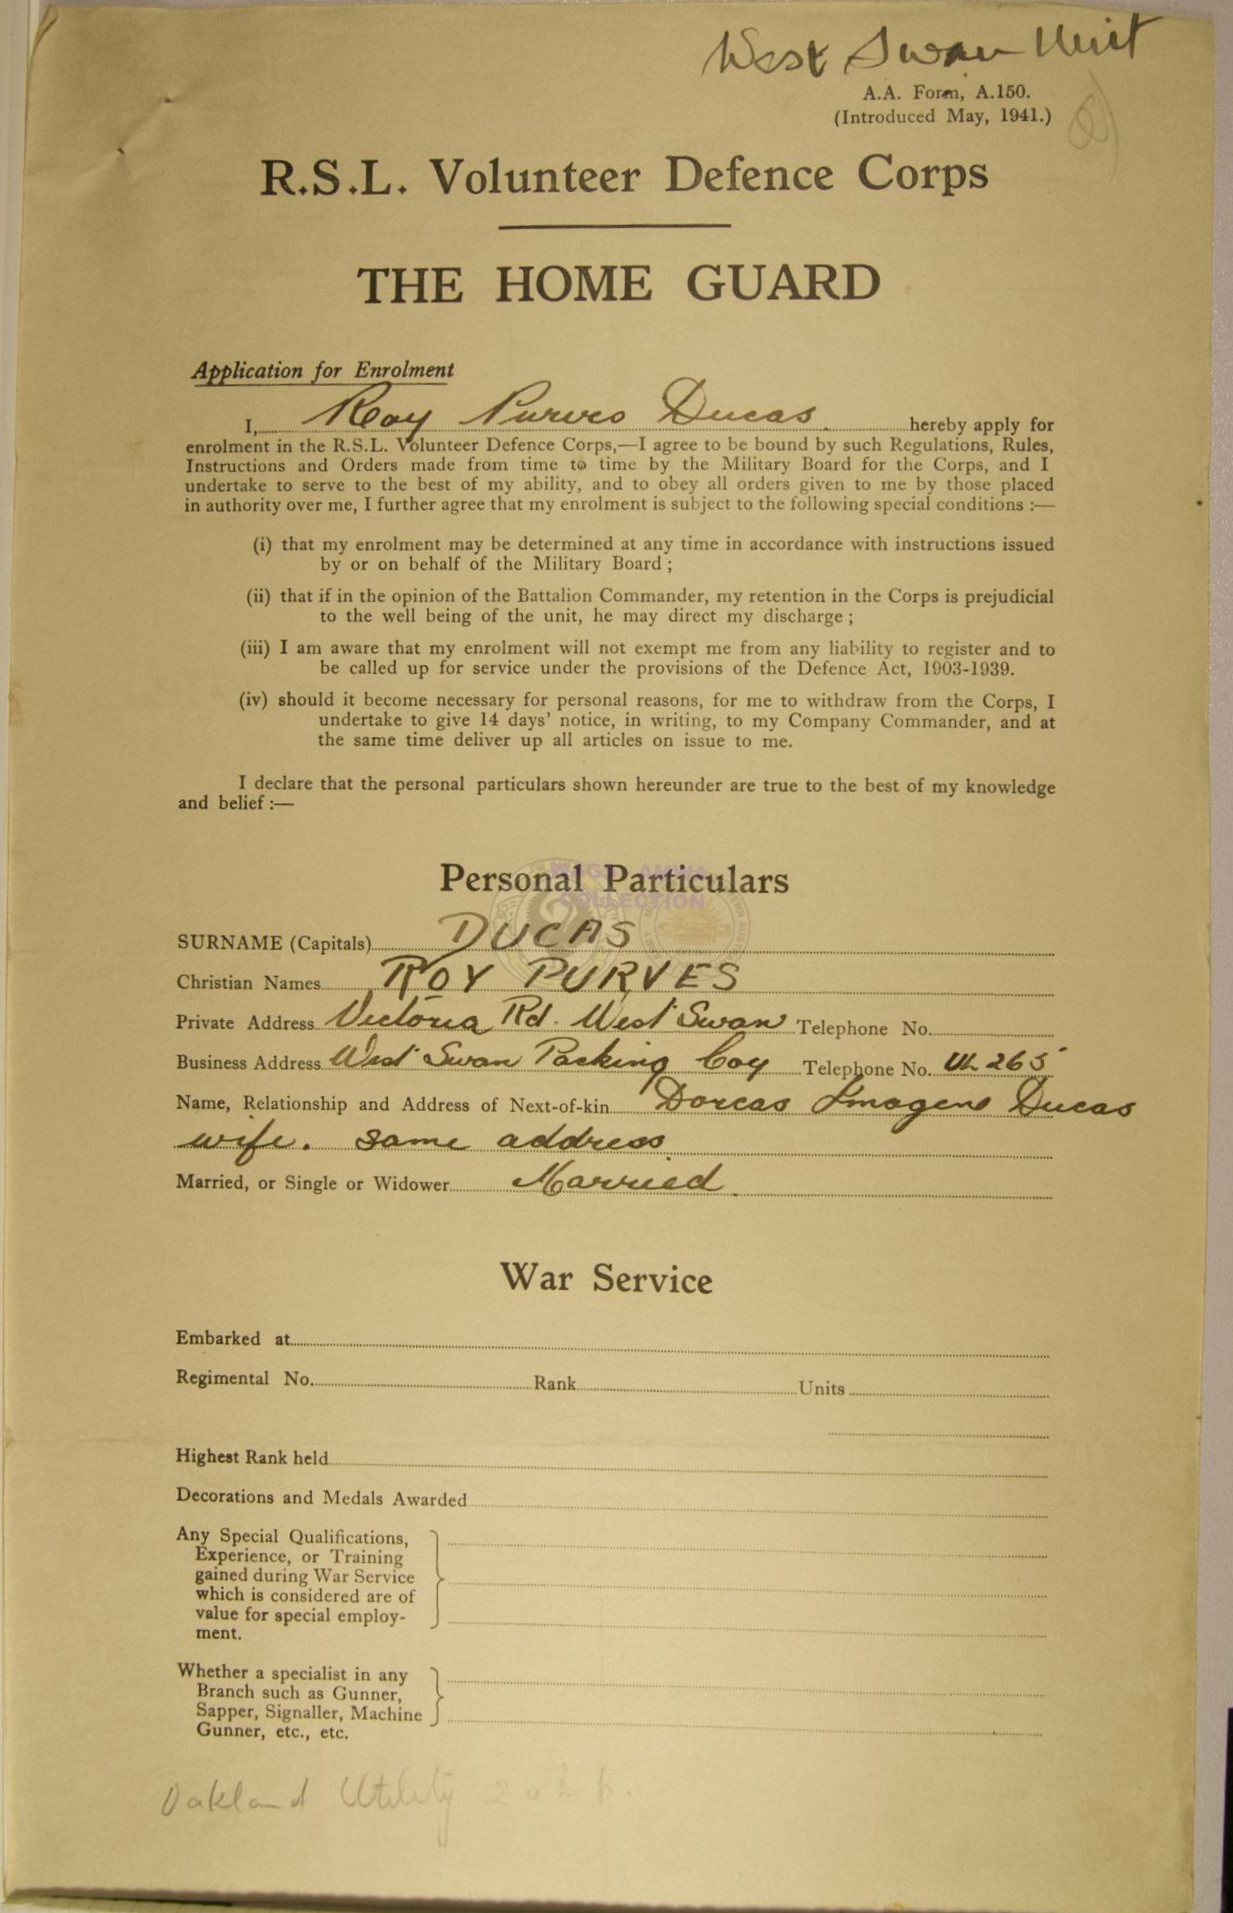 West Swan Unit
A.A. Form, A.150.
(Introduced May, 1941.)
R.S.L. Volunteer Defence Corps
THE HOME GUARD
Application for Enrolment
I, Roy Purves Ducas hereby apply for
enrolment in the R.S.L. Volunteer Defence Corps,—I agree to be bound by such Regulations, Rules,
Instructions and Orders made from time to time by the Military Board for the Corps, and I
undertake to serve to the best of my ability, and to obey all orders given to me by those placed
in authority over me, I further agree that my enrolment is subject to the following special conditions :—
(i) that my enrolment may be determined at any time in accordance with instructions issued
by or on behalf of the Military Board ;
(ii) that if in the opinion of the Battalion Commander, my retention in the Corps is prejudicial
to the well being of the unit, he may direct my discharge ;
(iii) I am aware that my enrolment will not exempt me from any liability to register and to
be called up for service under the provisions of the Defence Act, 1903-1939.
(iv) should it become necessary for personal reasons, for me to withdraw from the Corps, I
undertake to give 14 days' notice, in writing, to my Company Commander, and at
the same time deliver up all articles on issue to me.
I declare that the personal particulars shown hereunder are true to the best of my knowledge
and belief :—
Personal Particulars
COLLECTION
SURNAME (Capitals) DUCAS
Christian Names ROY PURVES
Private Address Victoria Rd. West Swan Telephone No.
Business Address West Swan Packing Coy Telephone No. UL 265
Name, Relationship and Address of Next-of-kin Dorcas Imogene Ducas
wife. same address
Married, or Single or Widower Married.
War Service
Embarked at
Regimental No. Rank Units
Highest Rank held
Decorations and Medals Awarded
Any Special Qualifications,
Experience, or Training
gained during War Service
which is considered are of
value for special employ-
ment.
Whether a specialist in any
Branch such as Gunner,
Sapper, Signaller, Machine
Gunner, etc., etc.
Oakland Utility 20 h.p.